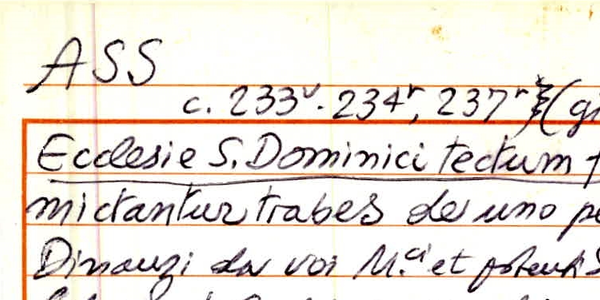 ASS
c. 233v. 234r, 237r (gi
Ecclesie S. Dominici tectum f
mictantur trabes de uno pe
Dinanzi da voi M.ci et potenti S